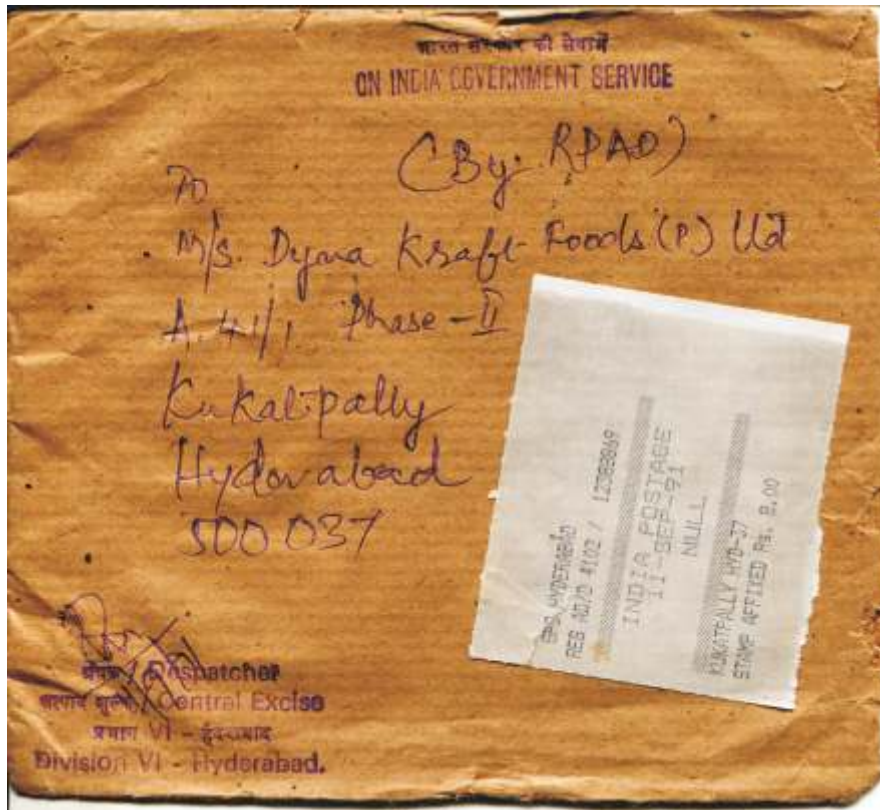 भारत सरकार की सेवामें
ON INDIA GOVERNMENT SERVICE
(By. RPAD)
To
M/s. Dyna Kraft Foods (P) Ltd
A. 41/1, Phase - II
Kukatpally
Hyderabad
500 037
HYDERABAD
REG AD/D #102 / 12383869
INDIA POSTAGE
11-SEP-91
NULL
KUKATPALLY HYD-37
STAMP AFFIXED Rs. 8.00
प्रेषक / Despatcher
उत्पाद शुल्क / Central Excise
प्रभाग VI - हैदराबाद
Division VI - Hyderabad.